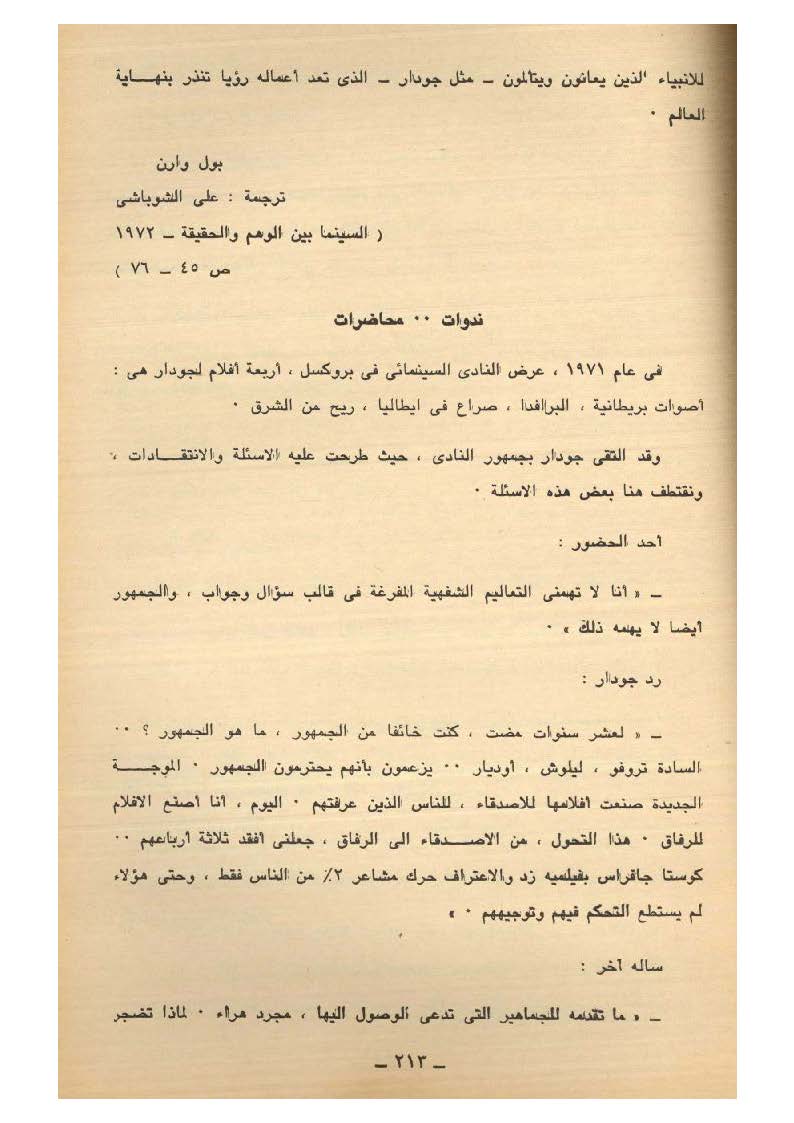 للانبياء الذين يعانون ويتألمون ـ مثل جودار ـ الذى تعد أعماله رؤيا تنذر بنهـــاية
العالم ٠
بول وارن
ترجمة : على الشوباشى
( السينما بين الوهم والحقيقة ـ ١٩٧٢
ص ٤٥ ـ ٧٦ )
ندوات ٠٠ محاضرات
فى عام ١٩٧١ ، عرض النادى السينمائى فى بروكسل ، أربعة أفلام لجودار هى :
أصوات بريطانية ، البرافدا ، صراع فى ايطاليا ، ريح من الشرق ٠
وقد التقى جودار بجمهور النادى ، حيث طرحت عليه الاسئلة والانتقـــادات ،
ونقتطف هنا بعض هذه الاسئلة ٠
أحد الحضور :
ـ « أنا لا تهمنى التعاليم الشفهية المفرغة فى قالب سؤال وجواب ، والجمهور
أيضا لا يهمه ذلك » ٠
رد جودار :
ـ « لعشر سنوات مضت ، كنت خائفا من الجمهور ، ما هو الجمهور ؟ ٠٠
السادة تروفو ، ليلوش ، أوديار ٠٠ يزعمون بأنهم يحترمون الجمهور ٠ الموجـــة
الجديدة صنعت أفلامها للاصدقاء ، للناس الذين عرفتهم ٠ اليوم ، أنا أصنع الافلام
للرفاق ٠ هذا التحول ، من الاصـــدقاء الى الرفاق ، جعلنى أفقد ثلاثة أرباعهم ٠٠
كوستا جافراس بفيلميه زد والاعتراف حرك مشاعر ٢٪ من الناس فقط ، وحتى هؤلاء
لم يستطع التحكم فيهم وتوجيههم ٠ »
ساله آخر :
ـ « ما تقدمه للجماهير التى تدعى الوصول اليها ، مجرد هراء ٠ لماذا تضجر
ـ ٢١٣ ـ